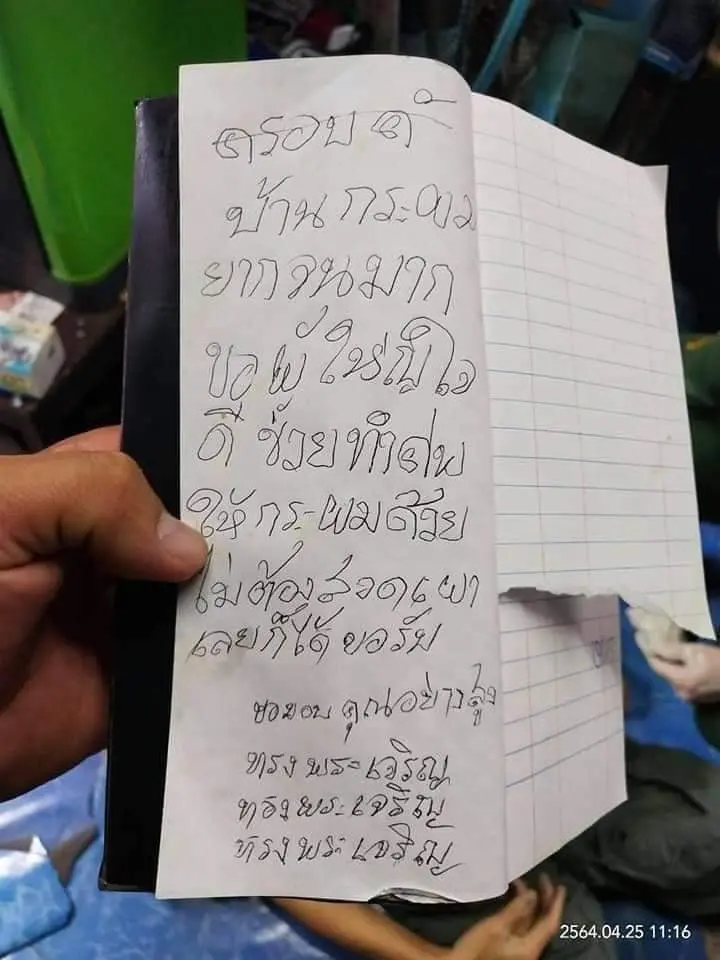 ครอบครั
บ้านกระผม
ยากจนมาก
ขอผู้ใหญ่ใจ
ดี ช่วยทำศพ
ให้กระผมด้วย
ไม่ต้องสวดเผา
เลยก็ได้ขอรับ
ขอขอบคุณอย่างสูง
ทรงพระเจริญ
ทรงพระเจริญ
ทรงพระเจริญ
2564.04.25 11:16